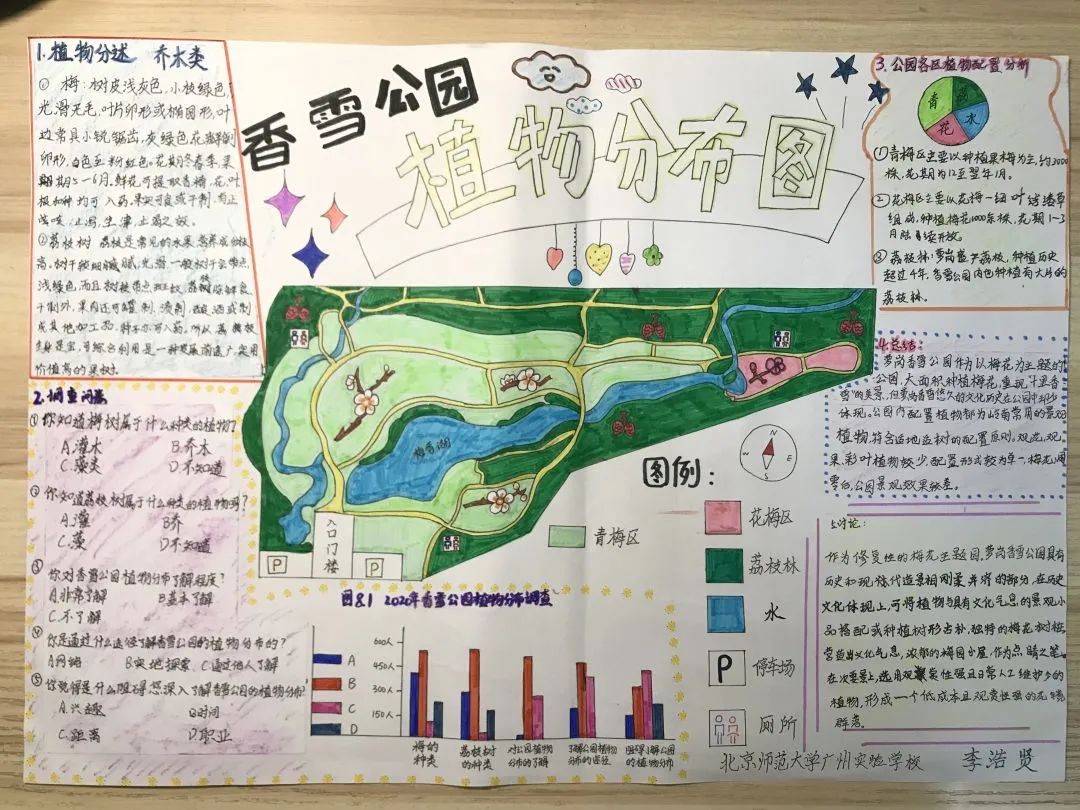 香雪公园
植物分布图
1.植物分述 乔木类
① 梅:树皮浅灰色,小枝绿色,
光滑无毛,叶片卵形或椭圆形,叶
边常具小锐锯齿,灰绿色,花瓣倒
卵形,白色至粉红色。花期冬春季,果
期5—6月。鲜花可提取香精,花、叶
根和种均可入药。果实可食或干制,有止
咳、止泻、生津、止渴之效。
②荔枝树 荔枝是常见的水果,营养成份极
高。树干较细腻,光滑,一般树干呈
浅绿色,而且树枝带点斑纹,荔枝除鲜食
干制外,果肉还可罐制、渍制、酿酒或制
成其他加工品,种子亦可入药。所以荔枝
全身是宝,可综合利用,是一种发展前途广,实用
价值高的果树.
2.调查问卷
①你知道梅树属于什么种类的植物?
A.灌木 B.乔木
C.藤类 D.不知道
②你知道荔枝树属于什么种类的植物吗?
A.灌 B.乔
C.藤 D.不知道
③你对香雪公园植物分布了解程度?
A.非常了解 B.基本了解
C.不了解
④你是通过什么途径了解香雪公园的植物分布的?
A.网络 B.实地探索 C.通过他人了解
⑤你觉得是什么阻碍您深入了解香雪公园的植物分布?
A.兴趣 B.时间
C.距离 D.职业
3.公园各区植物配置分析
青 荔 水 花
①青梅区主要以种植果梅为主,约3000
株,花期为12至翌年1月。
②花梅区主要以花梅一组
组成,种植梅花1000余株,花期1-3
月陆续开放。
③荔枝林:萝岗盛产荔枝,种植历史
超过千年,香雪公园内也种植有大片的
荔枝林.
4.总结:
萝岗香雪公园作为以梅花为主题的
公园,大面积种植梅花,重现"十里香
雪"的美景,但萝岗香雪悠久的文化历史在公园中却少
体现。公园内配置植物都为岭南常用的景观
植物,符合适地适树的配置原则,观花、观
果、彩叶植物较少,配置形式较为单一,梅花凋
零后,公园景观效果较差。
5.讨论:
作为修复性的梅花主题园,萝岗香雪公园具有
历史和现代造景相
文化体现上,可将植物与具有文化气息的景观小
品搭配或种植树形古朴、独特的梅花树桩,
营造出文化气息,浓郁的梅园小屋,作为点睛之笔。
在次要景上,选用观赏性强且日常人工维护少的
植物,形成一个低成本且观赏性强的花境
群落。
梅香湖
入口门楼
P
P
N
W E
S
图例:
青梅区
花梅区
荔枝林
水
P 停车场
厕所
图8.1 2020年香雪公园植物分布调查
A
B
C
D
600人
450人
300人
150人
梅的种类
荔枝树的种类
对公园植物分布的了解
了解公园植物分布的途径
阻碍了解公园的植物分布
北京师范大学广州实验学校 李浩贤